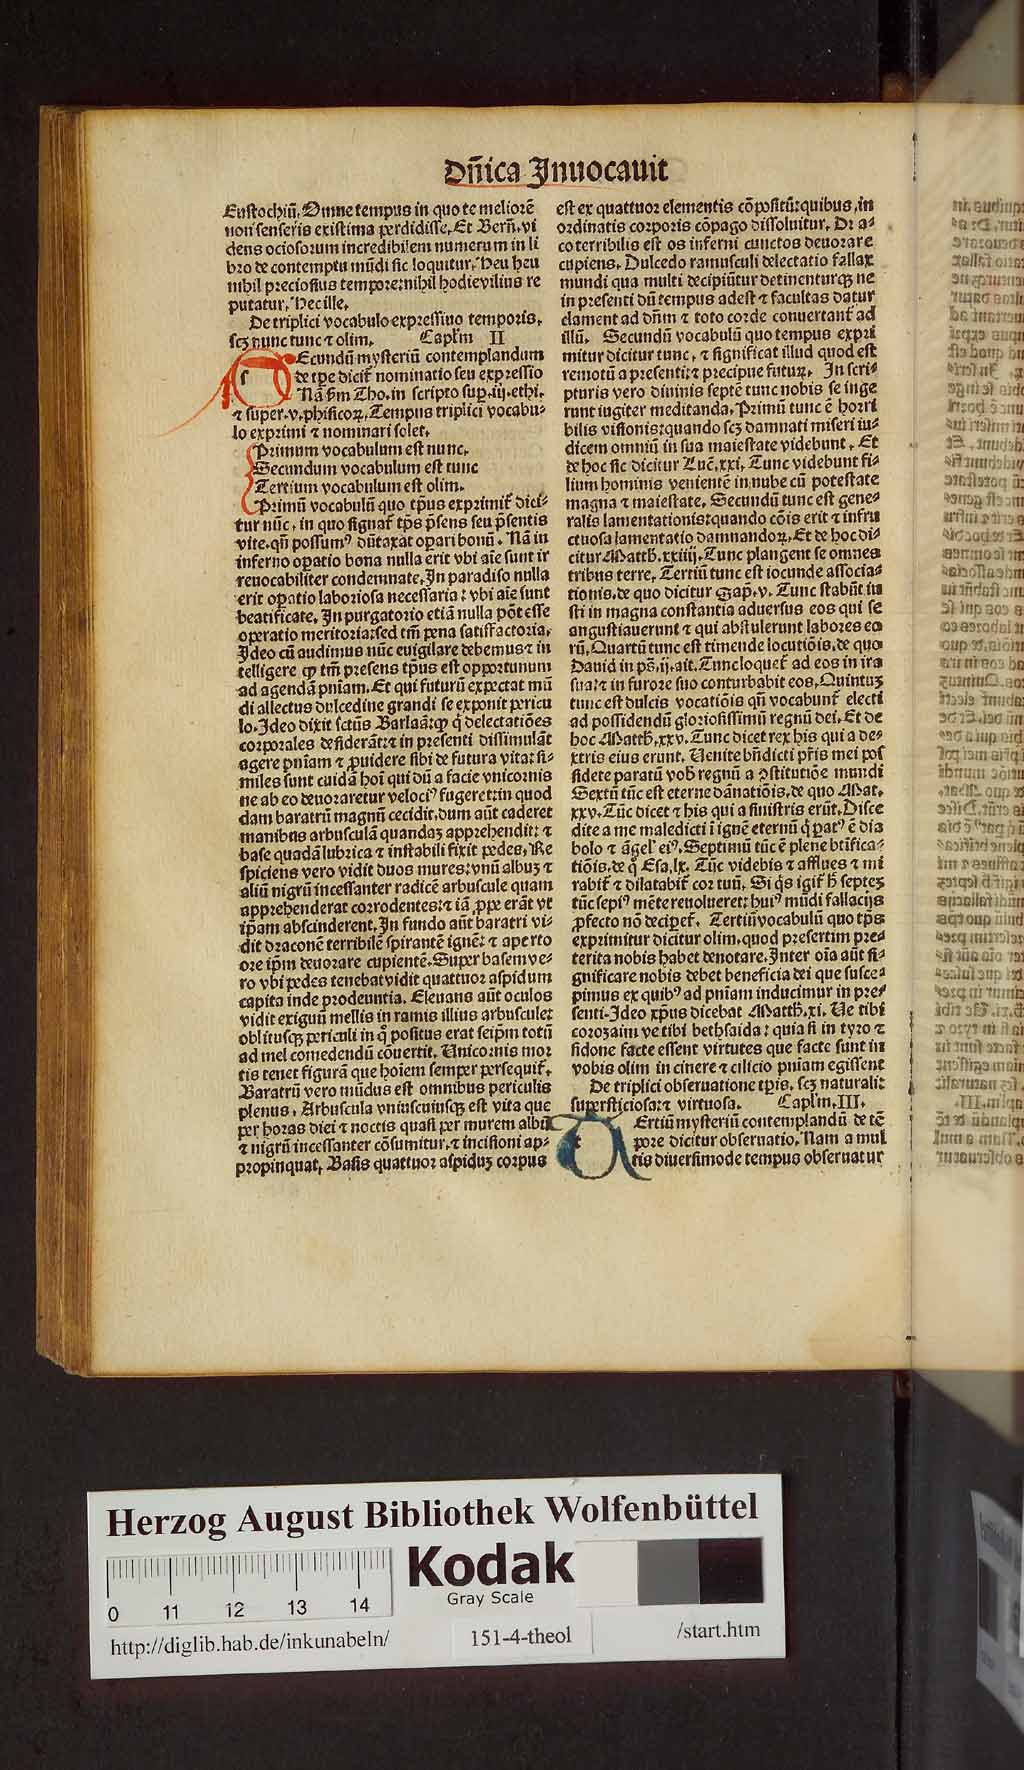 Dn̄ica Inuocauit
Eustochiū. Omne tempus in quo te meliorē
non senseris existima perdidisse. Et Bern̄. vi
dens ociosorum incredibilem numerum in li
bro de contemptu mūdi sic loquitur. Heu heu
nihil preciosius tempore: nihil hodie vilius re
putatur. Hec ille.
De triplici vocabulo expressiuo temporis.
scꝫ nunc tunc ⁊ olim. Caplm̄ II
Ecundū mysteriū contemplandum
de tp̄e dicit̄ nominatio seu expressio
Nā sm̄ Tho. in scripto sup̄. iij. ethi.
⁊ super. v. phisicoꝝ. Tempus triplici vocabu-
lo exprimi ⁊ nominari solet.
Primum vocabulum est nunc.
Secundum vocabulum est tunc
Tertium vocabulum est olim.
Primū vocabulū quo tp̄us exprimit̄ dici-
tur nūc, in quo signat̄ tp̄s p̄sens seu p̄sentis
vite. qn̄ possumꝰ dūtaxat op̄ari bonū. Nā in
inferno op̄atio bona nulla erit vbi aīe sunt ir
reuocabiliter condemnate. In paradiso nulla
erit op̄atio laboriosa necessaria: vbi aīe sunt
beatificate. In purgatorio etiā nulla pōt esse
operatio meritoria: sed tm̄ pena satisfactoria.
Ideo cū audimus nūc euigilare debemus ⁊ in
telligere ꝙ tm̄ presens tp̄us est opportunum
ad agendā pn̄iam. Et qui futurū expectat mū
di allectus dulcedine grandi se exponit pericu
lo. Ideo dixit sctūs Barlaā: ꝙ q̄ delectatiōes
corporales desiderāt: ⁊ in presenti dissimulāt
agere pn̄iam ⁊ ꝓuidere sibi de futura vita: si-
miles sunt cuidā hoī qui dū a facie vnicornis
ne ab eo deuoraretur velociꝰ fugeret: in quod
dam baratrū magnū cecidit. dum aūt caderet
manibus arbusculā quandaꝫ apprehendit: ⁊
base quadā lubrica ⁊ instabili fixit pedes. Re
spiciens vero vidit duos mures: vnū albuꝫ ⁊
aliū nigrū incessanter radicē arbuscule quam
apprehenderat corrodentes: ⁊ iā ꝓpe erāt vt
ip̄am abscinderent. In fundo aūt baratri vi-
dit draconē terribilē spirantē ignē: ⁊ aperto
ore ip̄m deuorare cupientē. Super basem ve-
ro vbi pedes tenebat vidit quattuor aspidum
capita inde prodeuntia. Eleuans aūt oculos
vidit exiguū mellis in ramis illius arbuscule:
oblitusqꝫ periculi in q̄ positus erat seip̄m totū
ad mel comedendū cōuertit. Vnicornis mor
tis tenet figurā que hoīem semper persequit̄.
Baratrū vero mūdus est omnibus periculis
plenus. Arbuscula vniuscuiusqꝫ est vita que
per horas diei ⁊ noctis quasi per murem albū
⁊ nigrū incessanter cōsumitur. ⁊ incisioni ap-
propinquat. Basis quattuor aspiduꝫ corpus
est ex quattuor elementis cōpositū: quibus, in
ordinatis corporis cōpago dissoluitur. Dra-
co terribilis est os inferni cunctos deuorare
cupiens. Dulcedo ramusculi delectatio fallax
mundi qua multi decipiūtur detinenturqꝫ ne
in presenti dū tempus adest ⁊ facultas datur
clament ad dn̄m ⁊ toto corde conuertant̄ ad
illū. Secundū vocabulū quo tempus expri
mitur dicitur tunc, ⁊ significat illud quod est
remotū a presenti: ⁊ precipue futuꝝ. In scri-
pturis vero diuinis septē tunc nobis se inge
runt iugiter meditanda. Primū tunc ē horri
bilis visionis: quando scꝫ damnati miseri iu-
dicem omniū in sua maiestate videbunt. Et
de hoc sic dicitur Luc̄. xxi. Tunc videbunt fi-
lium hominis venientē in nube cū potestate
magna ⁊ maiestate. Secundū tunc est gene-
ralis lamentationis: quando cōis erit ⁊ infru
ctuosa lamentatio damnandoꝝ. Et de hoc di-
citur Matth̄. xxiiij. Tunc plangent se omnes
tribus terre. Tertiū tunc est iocunde associa-
tionis. de quo dicitur Sap̄. v. Tunc stabūt iu
sti in magna constantia aduersus eos qui se
angustiauerunt ⁊ qui abstulerunt labores eo
rū. Quartū tunc est timende locutiōis. de quo
Dauid in ps̄. ij. ait. Tunc loquet̄ ad eos in ira
sua: ⁊ in furore suo conturbabit eos. Quintuꝫ
tunc est dulcis vocatiōis qn̄ vocabunt̄ electi
ad possidendū gloriosissimū regnū dei. Et de
hoc Matth̄. xxv. Tunc dicet rex his qui a de-
xtris eius erunt. Venite bn̄dicti pr̄is mei pos
sidete paratū vob̄ regnū a ꝯstitutiōe mundi
Sextū tūc est eterne dānatiōis. de quo Mat.
xxv. Tūc dicet ⁊ his qui a sinistris erūt. Disce
dite a me maledicti ī ignē eternū q̄ ꝑatꝰ ē dia
bolo ⁊ āgel̄ eiꝰ. Septimū tūc ē plene btīfica-
tiōis. de q̄ Esa. lx. Tūc videbis ⁊ afflues ⁊ mi
rabit̄ ⁊ dilatabit̄ cor tuū. Si q̄s igit̄ h̄ septeꝫ
tūc sepiꝰ mēte reuolueret: huiꝰ mūdi fallacijs
ꝓfecto nō decipet̄. Tertiū vocabulū quo tp̄s
exprimitur dicitur olim. quod presertim pre-
terita nobis habet denotare. Inter oīa aūt si-
gnificare nobis debet beneficia dei que susce-
pimus ex quibꝰ ad pn̄iam inducimur in pre-
senti. Ideo xp̄us dicebat Matth̄. xi. Ve tibi
corozaim ve tibi bethsaida: quia si in tyro ⁊
sidone facte essent virtutes que facte sunt in
vobis olim in cinere ⁊ cilicio pn̄iam egissent
De triplici obseruatione tp̄is. scꝫ naturali:
supersticiosa: ⁊ virtuosa. Caplm̄. III.
Ertiū mysteriū contemplandū de tē
pore dicitur obseruatio. Nam a mul
tis diuersimode tempus obseruatur
Herzog August Bibliothek Wolfenbüttel
Kodak
Gray Scale
0 11 12 13 14
http://diglib.hab.de/inkunabeln/ 151-4-theol /start.htm